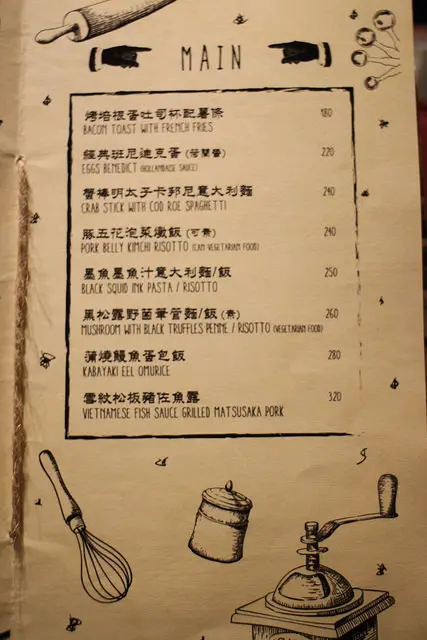 MAIN
烤培根蛋吐司杯配薯條 180
BACON TOAST WITH FRENCH FRIES
經典班尼迪克蛋 (荷蘭醬) 220
EGGS BENEDICT (HOLLANDAISE SAUCE)
蟹棒明太子卡邦尼意大利麵 240
CRAB STICK WITH COD ROE SPAGHETTI
豚五花泡菜燉飯 (可素) 240
PORK BELLY KIMCHI RISOTTO (CAN VEGETARIAN FOOD)
墨魚墨魚汁意大利麵/飯 250
BLACK SQUID INK PASTA / RISOTTO
黑松露野菌筆管麵/飯 (素) 260
MUSHROOM WITH BLACK TRUFFLES PEMME / RISOTTO (VEGETARIAN FOOD)
蒲燒鰻魚蛋包飯 280
KABAYAKI EEL OMURICE
雪紋松板豬佐魚露 320
VIETNAMESE FISH SAUCE GRILLED MATSUSAKA PORK